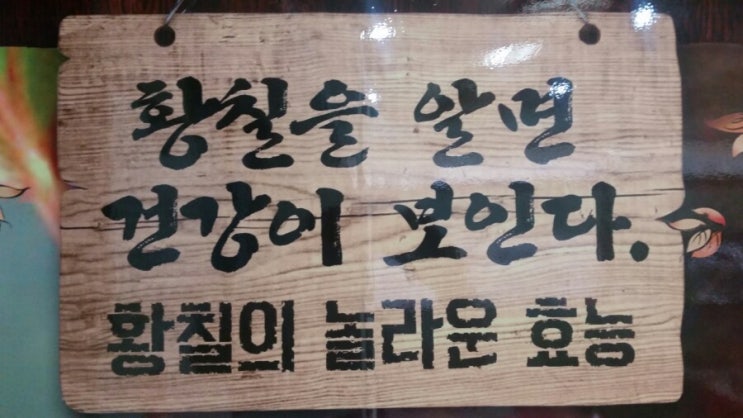 황칠을 알면
건강이 보인다.
황칠의 놀라운 효능